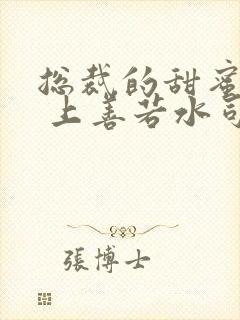 总裁的甜蜜
上善若水司
張博士